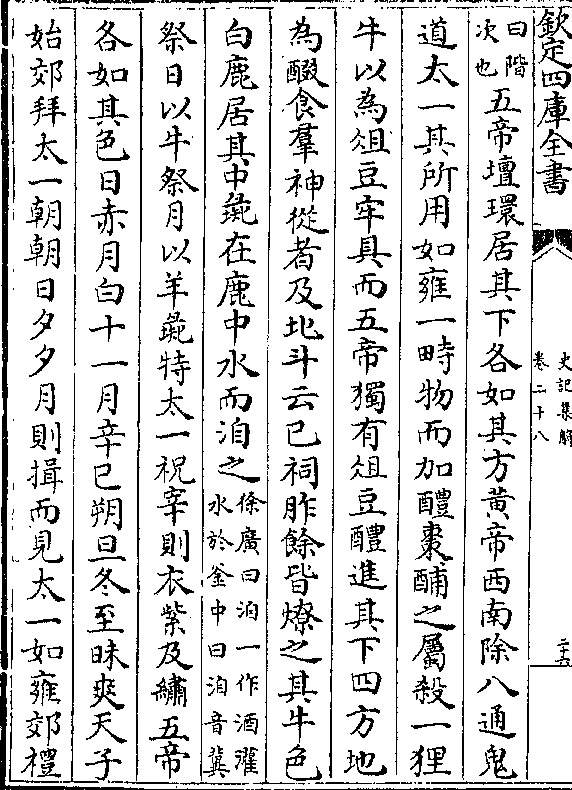 欽定四庫全書
史記集解
卷二十八
二十五
曰階次也五帝壇環居其下各如其方黄帝西南除八通鬼
道太一其所用如雍一畤物而加醴棗酺之屬殺一狸
牛以為俎豆牢具而五帝獨有俎豆醴進其下四方地
為醊食羣神從者及北斗云已祠胙餘皆燎之其牛色
白鹿居其中彘在鹿中水而洎之徐廣曰洎一作酒灌水於釜中曰洎音冀
祭日以牛祭月以羊彘特太一祝宰則衣紫及繡五帝
各如其色日赤月白十一月辛巳朔旦冬至昧爽天子
始郊拜太一朝朝日夕夕月則揖而見太一如雍郊禮